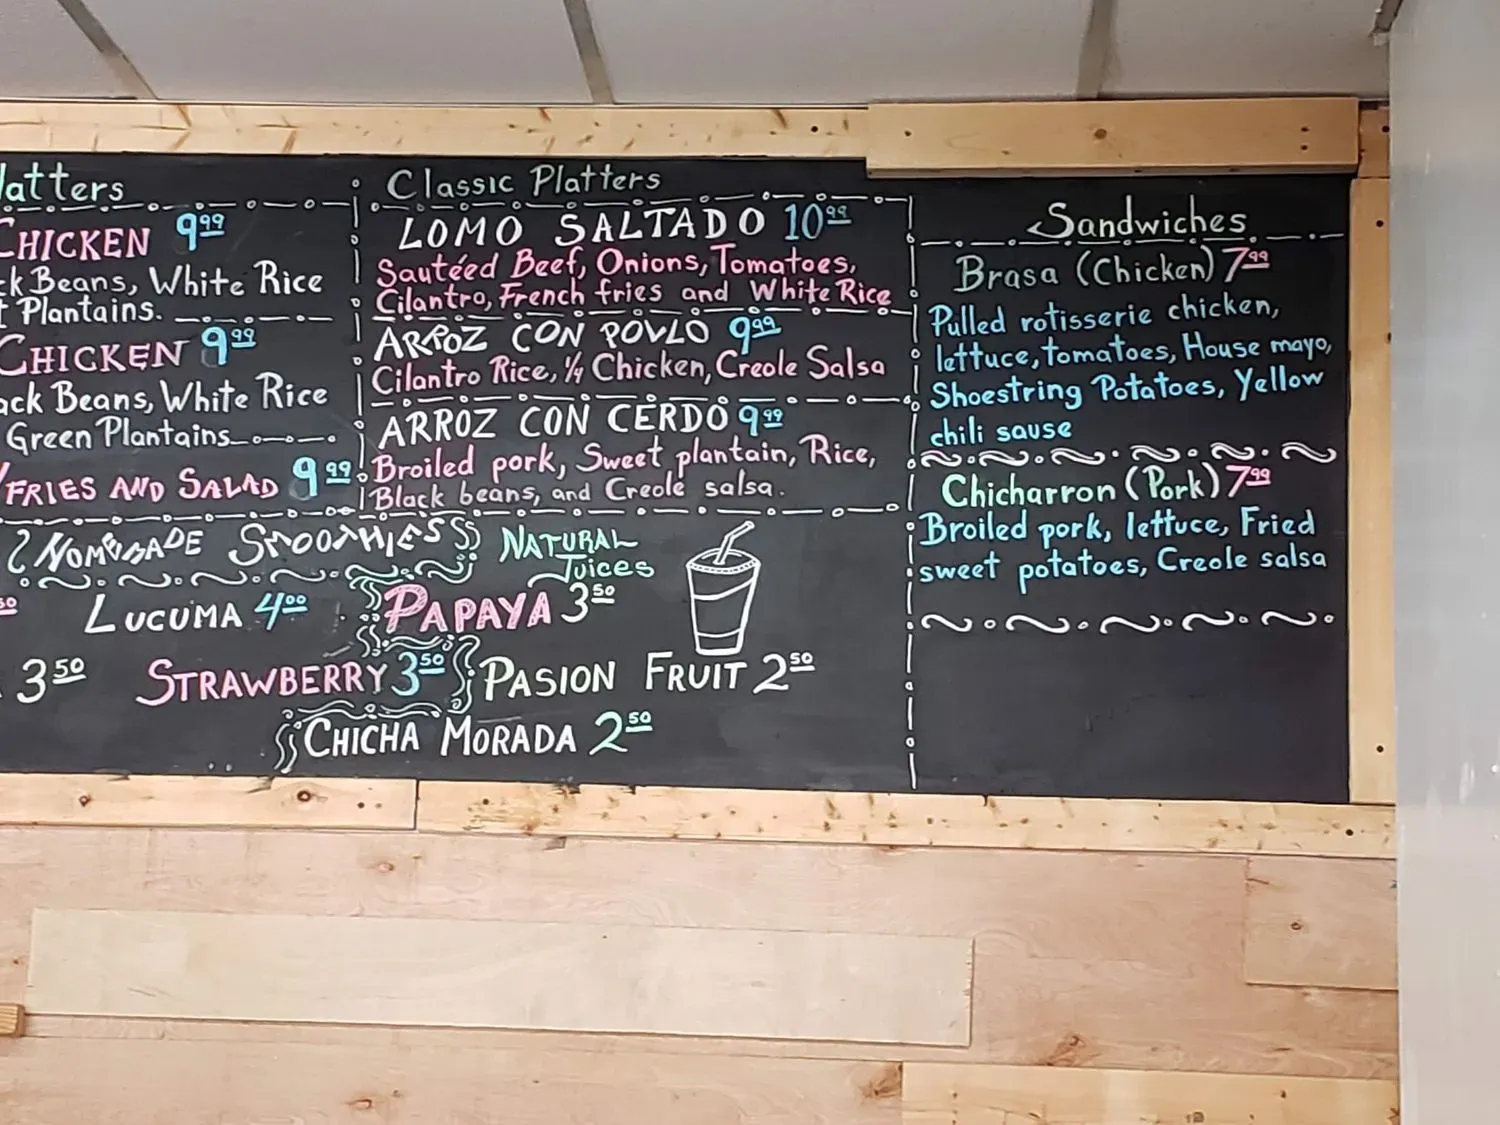 Classic Platters
CHICKEN 9.99
Beans, White Rice
Plantains.
CHICKEN 9.99
Beans, White Rice
Green Plantains
FRIES AND SALAD 9.99
LOMO SALTADO 10.99
Sautéed Beef, Onions, Tomatoes,
Cilantro, French fries and White Rice
ARROZ CON POVLO 9.99
Cilantro Rice, 1/4 Chicken, Creole Salsa
ARROZ CON CERDO 9.99
Broiled pork, Sweet plantain, Rice,
Black beans, and Creole salsa.
HOMEMADE SMOOTHIES
NATURAL
Juices
LUCUMA 4.00
PAPAYA 3.50
3.50
STRAWBERRY 3.50
PASION FRUIT 2.50
CHICHA MORADA 2.50
Sandwiches
Brasa (Chicken) 7.99
Pulled rotisserie chicken,
lettuce, tomatoes, House mayo,
Shoestring Potatoes, Yellow
chili sause
Chicharron (Pork) 7.99
Broiled pork, lettuce, Fried
sweet potatoes, Creole salsa